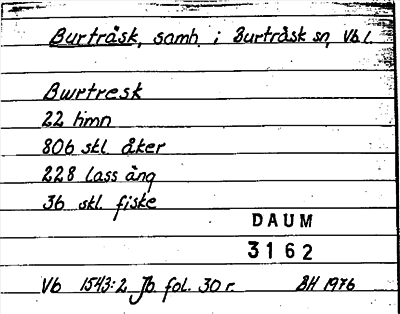 Burträsk, samh. i Burträsk sn, Vb l.
Bwrtresk
22 hmn
806 skl åker
228 lass äng
36 skl fiske
DAUM
3162
Vb 1543:2 Jb fol. 30 r. BH 1976